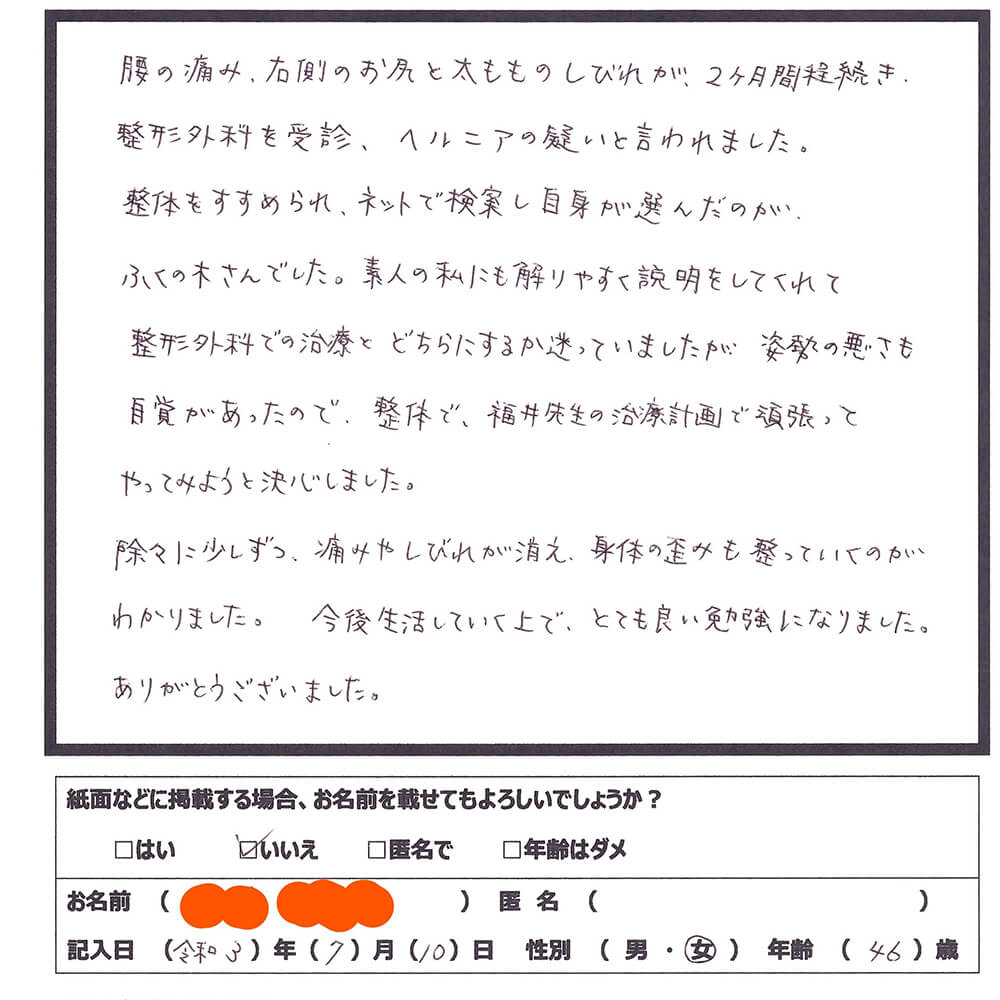 腰の痛み、右側のお尻と太もものしびれが、2ヶ月間程続き、
整形外科を受診、ヘルニアの疑いと言われました。
整体をすすめられ、ネットで検案し自身が選んだのが、
ふくの木さんでした。素人の私にも解りやすく説明をしてくれて
整形外科での治療とどちらにするか迷っていましたが 姿勢の悪さも
自覚があったので、整体で、福井先生の治療計画で頑張って
やってみようと決心しました。
除々に少しずつ、痛みやしびれが消え、身体の歪みも整っていくのが
わかりました。 今後生活していく上で、とても良い勉強になりました。
ありがとうございました。
紙面などに掲載する場合、お名前を載せてもよろしいでしょうか？
□はい ☑いいえ □匿名で □年齢はダメ
お名前 （ ） 匿 名 （ ）
記入日 （令和3）年（7）月（10）日 性別 （ 男 ・ 女 ） 年齢 （ 46 ）歳